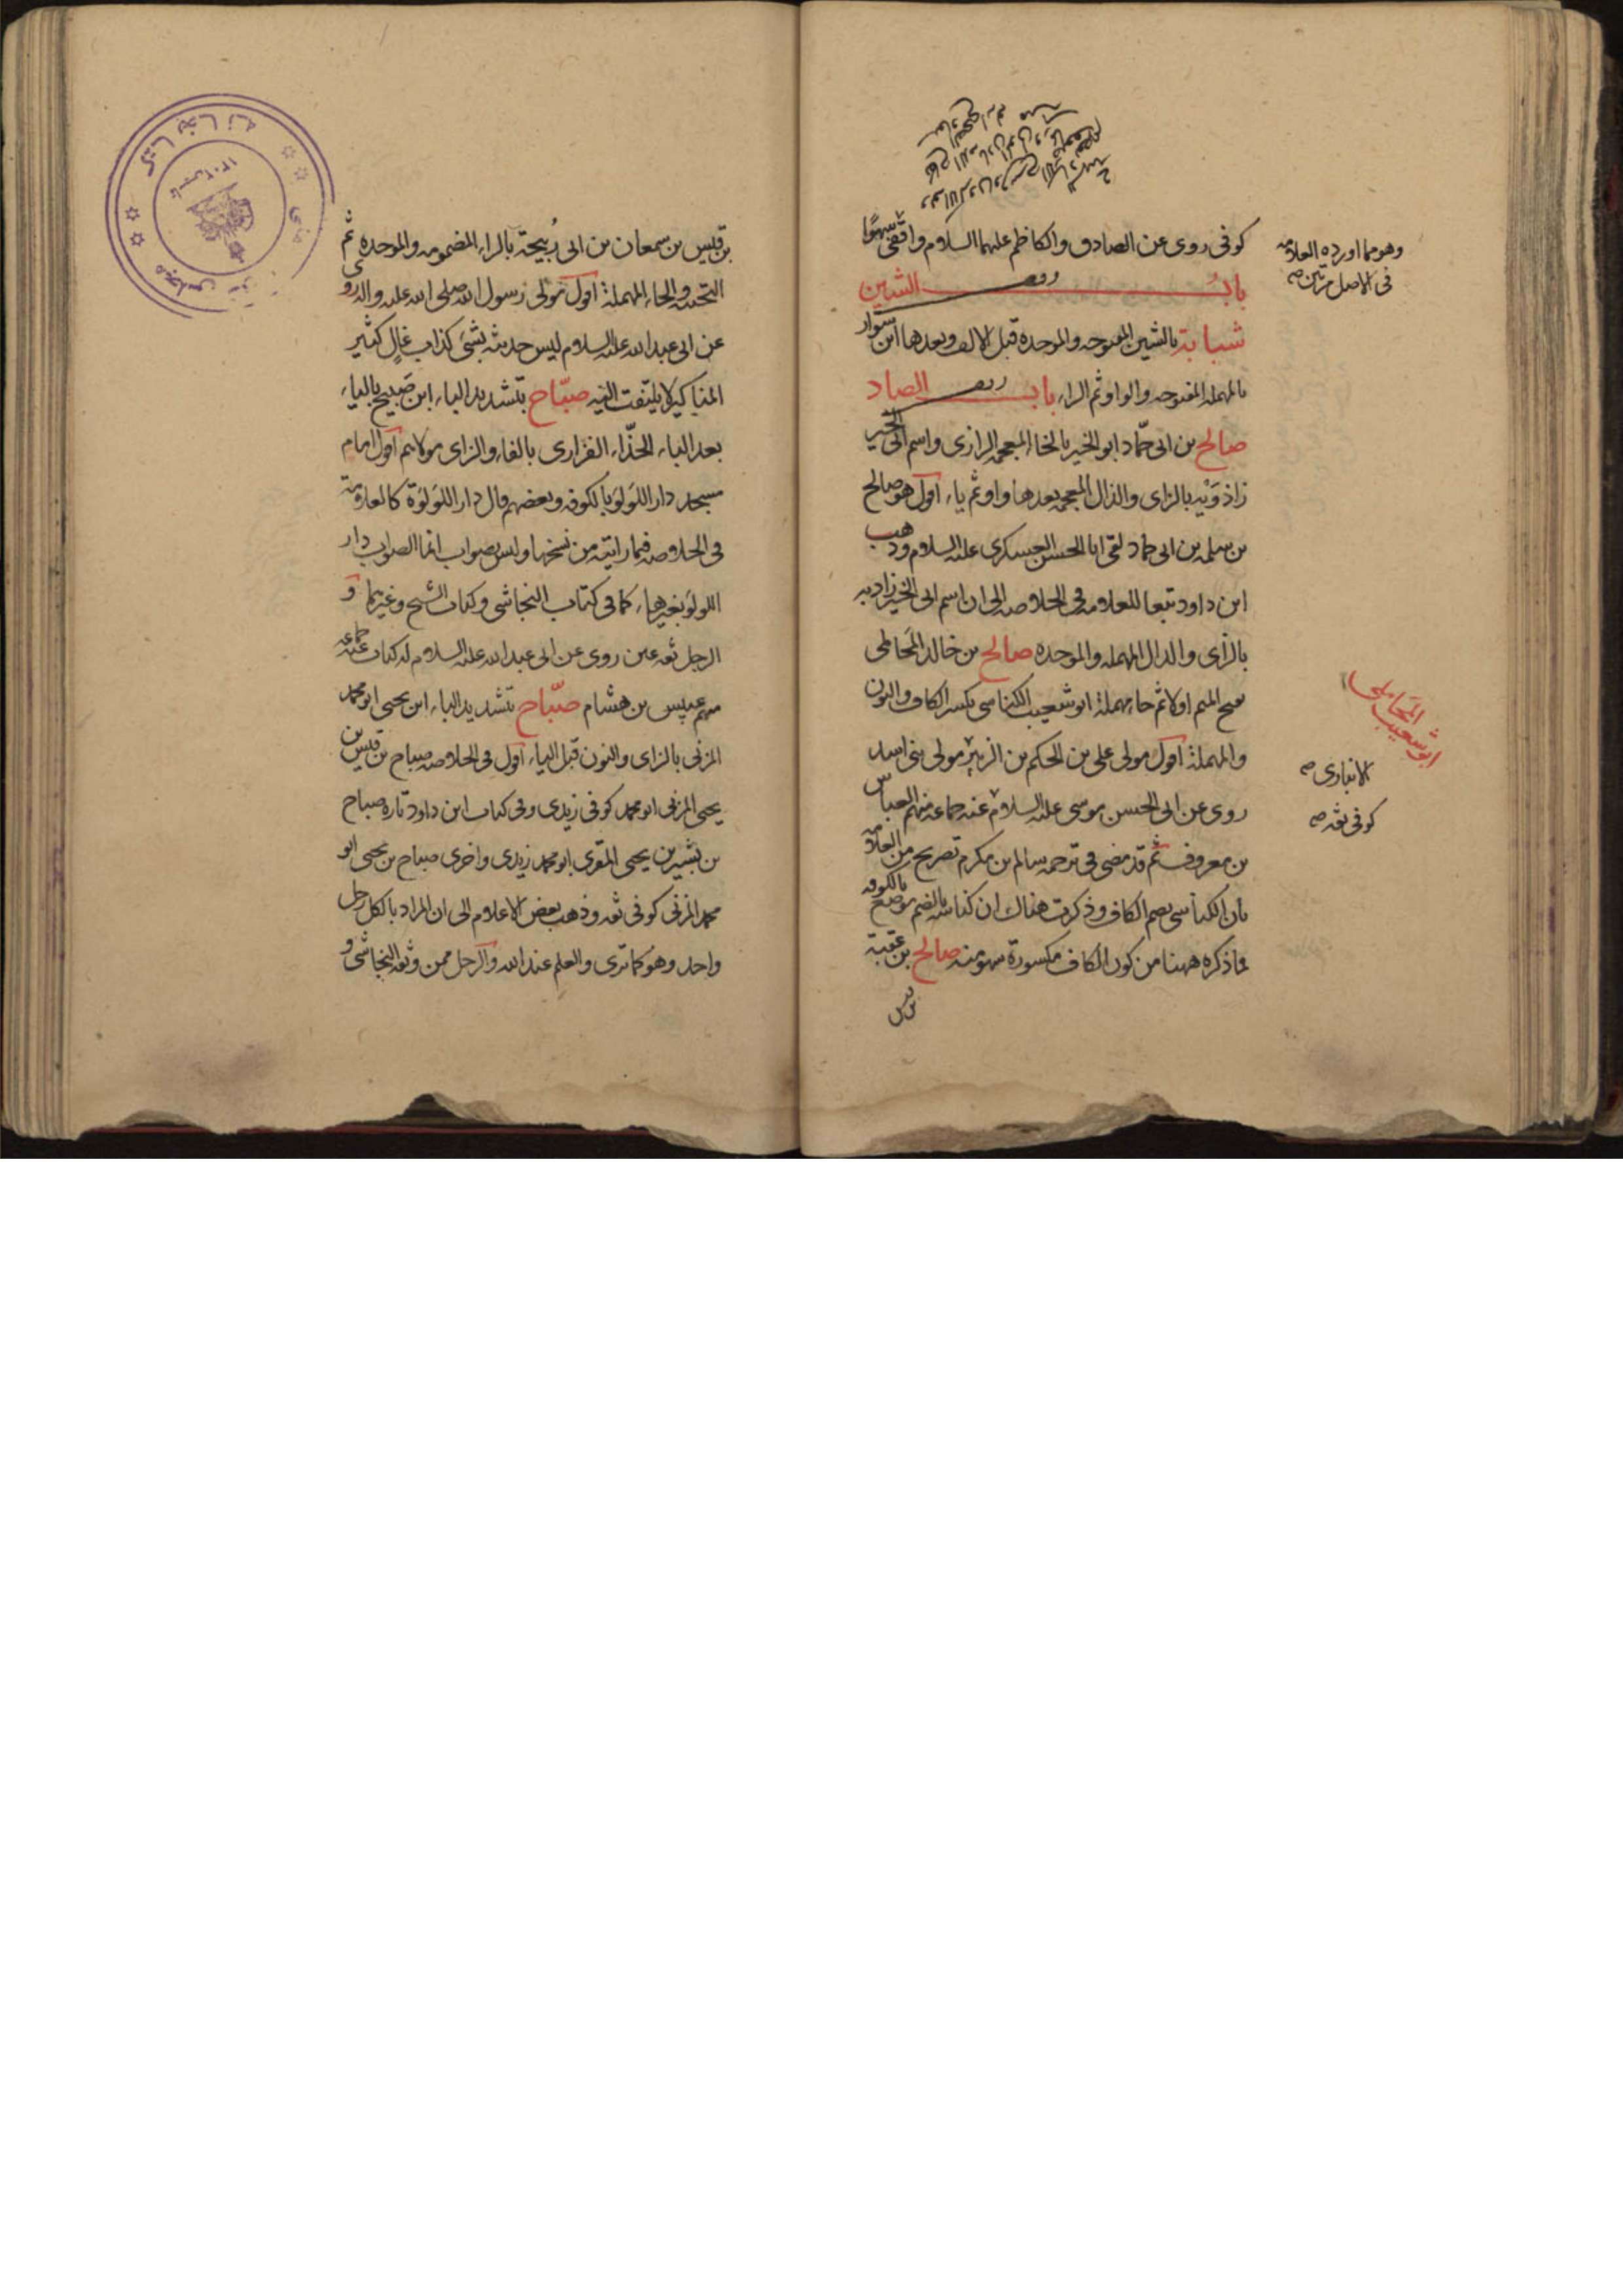 كوفى روى عن الصادق والكاظم عليهما السلام واقفى سهوًا
باب الشين
شبابة بالشين المفتوحه والموحده قبل الالف وبعدها ابن سوار
بالمهمله المفتوحه والواو ثم الراء باب الصاد
صالح بن ابى حمّاد ابو الخير بالخاء المعجمه الرازى واسم ابى الخير
زاذوَيْه بالزاى والذال المعجمه بعدها واو ثم ياء اقول هو صالح
بن سلمه بن ابى حماد لقى ابا الحسن العسكرى عليه السلام وذهب
ابن داود تبعا للعلامه فى الخلاصه الى ان اسم ابى الخير زادبه
بالزاى والدال المهمله والموحده صالح بن خالد المَحَاملى
بفتح الميم اولا ثم حاء مهملة ابو شعيب الكناسى بكسر الكاف والنون
والمهملة اقول مولى على بن الحكم بن الزبير مولى بنى اسد
روى عن ابى الحسن موسى عليه السلام عنه جماعه منهم العباس
بن معروف ثم قد مضى فى ترجمه سالم بن مكرم تصريح من العلامه
بان الكناسى بضم الكاف وذكرت هناك ان كناسه بالضم موضع بالكوفه
فما ذكره ههنا من كون الكاف مكسورة سهو منه صالح بن عقبة
بن قيس
وهو مما اورده العلامه
فى الاصل مرتين صه
المَحَاملى
ابو شعيب
الانبارى صه
كوفى ثقه صه
بن قيس بن سمعان بن ابى رُبيحة بالراء المضمومه والموحده ثم
التحتيه والحاء المهملة اقول مولى رسول الله صلى الله عليه واله روى
عن ابى عبد الله عليه السلام ليس حديثه بشئ كذاب غالٍ كثير
المناكير لا يلتفت اليه صبّاح بتشديد الباء ابن صَبيح بالياء
بعد الباء الحذّاء الفزارى بالفاء والزاى مولاهم اقول امام
مسجد دار اللولؤ بالكوفه وبعضهم قال دار اللولؤة كالعلامة
فى الخلاصه فيما رايته من نسخها وليس بصواب انما الصواب دار
اللولؤ بغير هاء كما فى كتاب النجاشى وكتاب الشيخ وغيرهما و
الرجل ثقه عين روى عن ابى عبد الله عليه السلام له كتاب عنه جماعه
منهم عبيس بن هشام صبّاح بتشديد الباء ابن يحيى ابو محمد
المزنى بالزاى والنون قبل الياء اقول فى الخلاصه صباح بن قيس بن
يحيى المزنى ابو محمد كوفى زيدى وفى كتاب ابن داود تارة صباح
بن بشير بن يحيى المقرى ابو محمد زيدى واخرى صباح بن يحيى ابو
محمد المزنى كوفى ثقه وذهب بعض الاعلام الى ان المراد بالكل رجل
واحد وهو كما ترى والعلم عند الله والرجل ممن وثقه النجاشى و